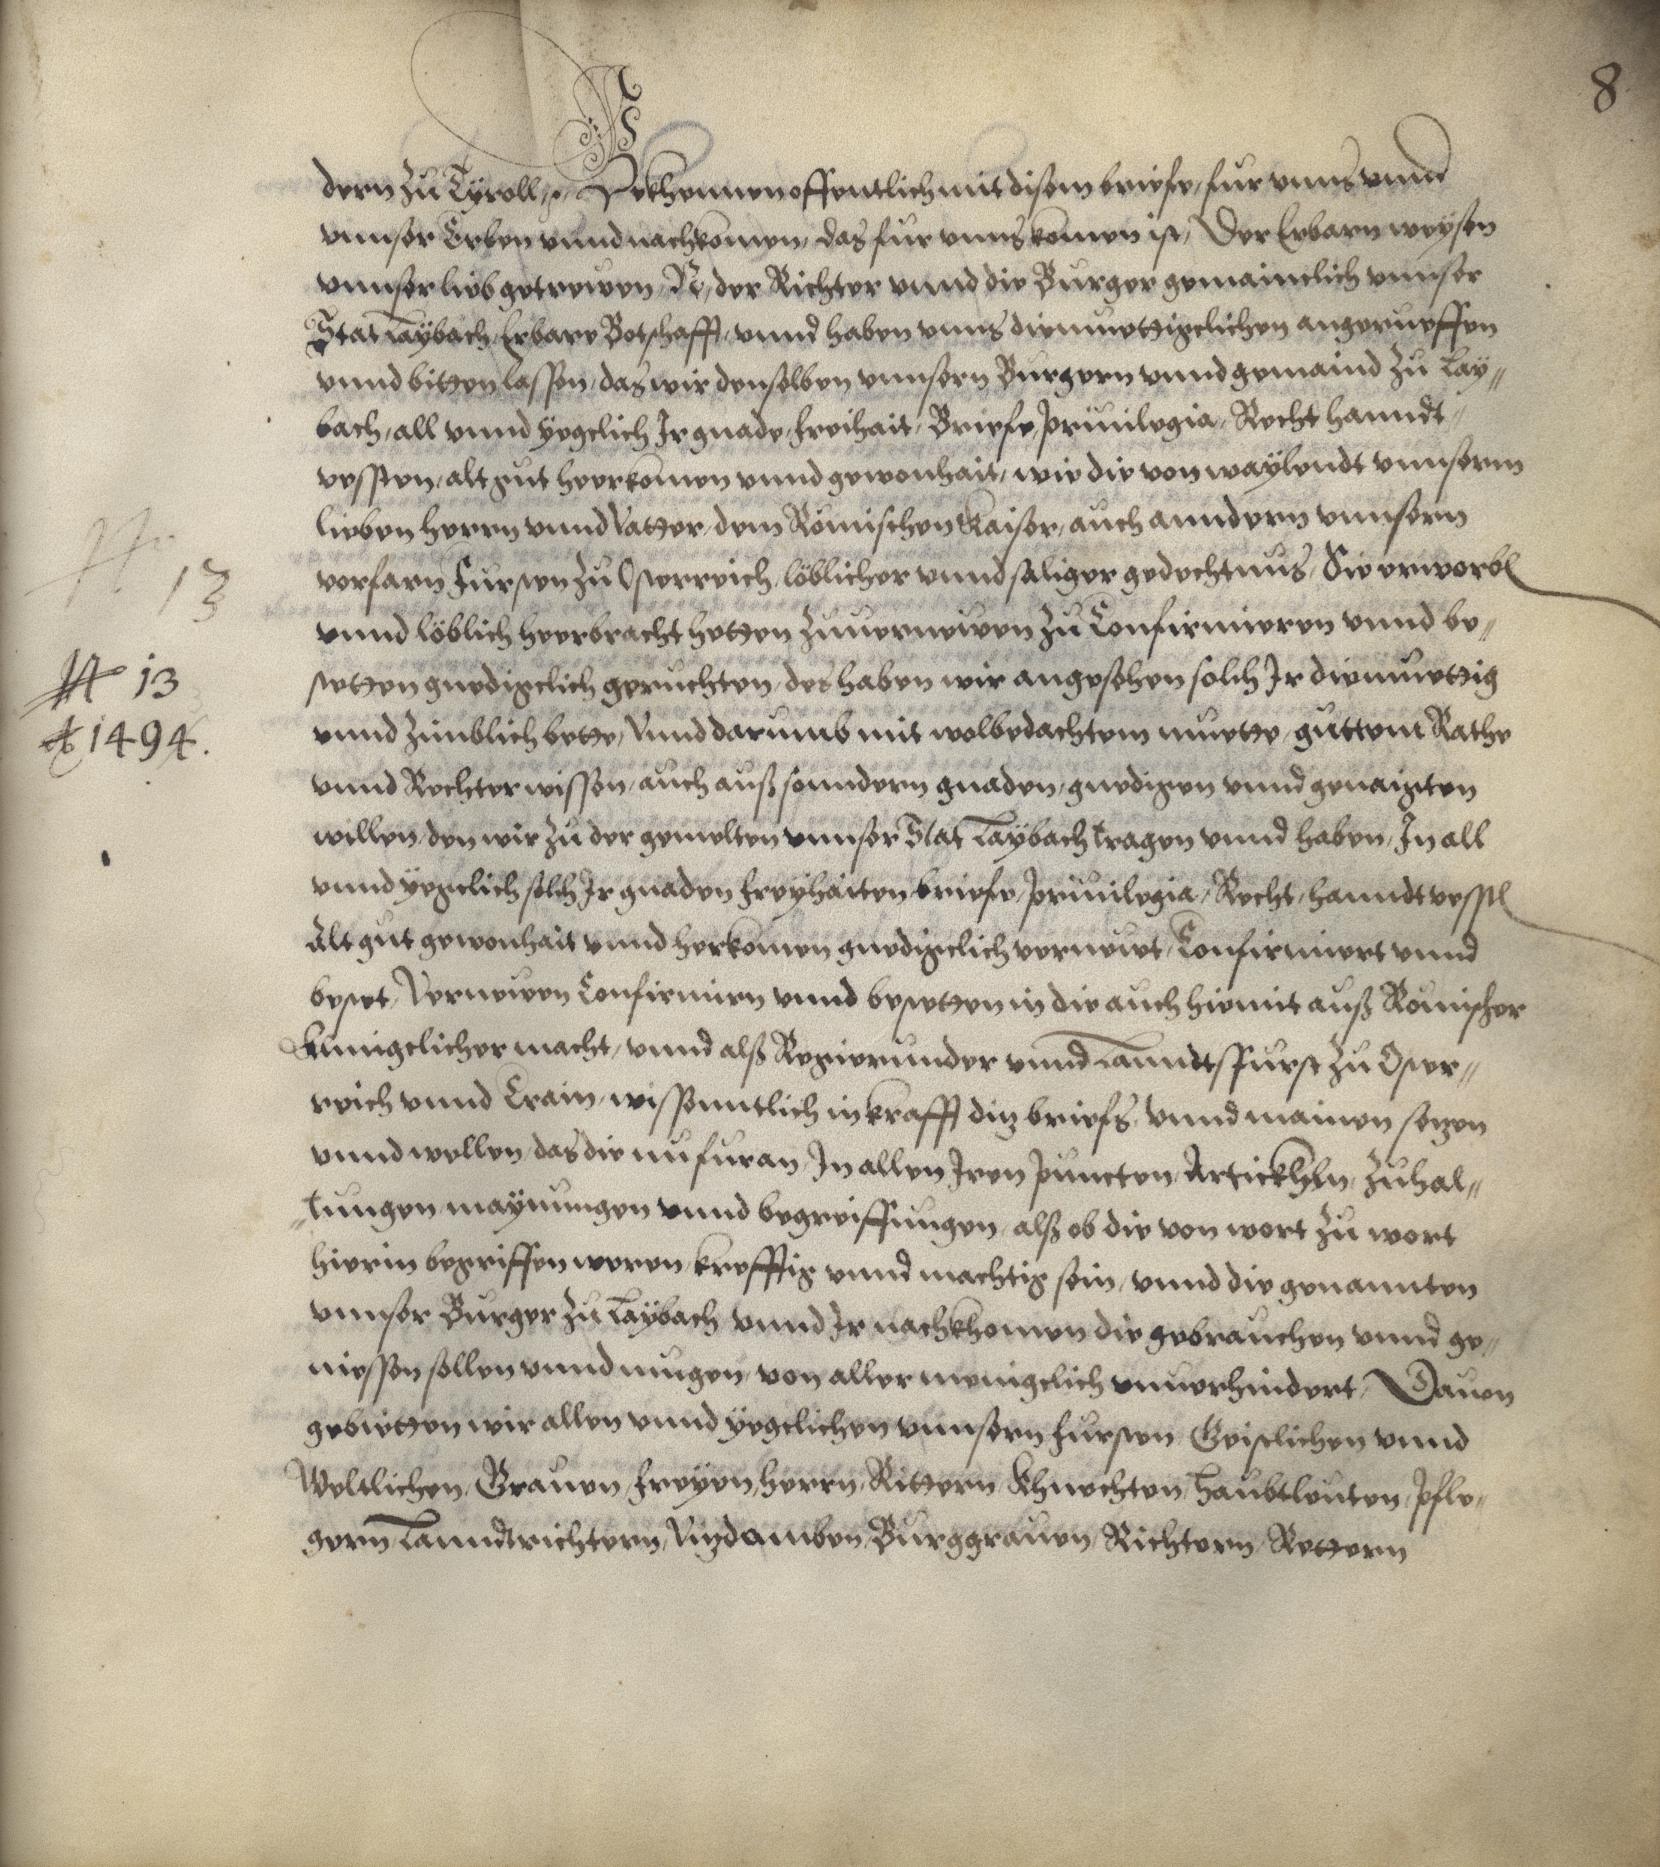 8
dern zu Tyroll, ꝛc. Bekhennen offentlich mit disem briefe, fur vnns vnnd
vnnser Erben vnnd nachkomen, das fur vnns komen ist, Der Erbarn weysen
vnnser lieb getrewen, N, der Richter vnnd die Burger gemainclich vnnser
Stat Laybach, Erbare Botschafft, vnnd haben vnns diemuettigclichen angerueffen
vnnd bitten lassen, das wir denselben vnnsern Burgern vnnd gemaind zu Lay„
bach, all vnnd yegclich Ir gnade, freihait, Briefe, priuilegia, Recht hanndt„
vessten, alt gut heerkomen vnnd gewonhait, wie die von waylendt vnnserm
lieben herrn vnnd Vatter, dem Römischen Kaiser, auch anndern vnnsern
vorfarn Fursten zu Osterreich, löblicher vnnd saliger gedechtnus, Sie erworben
vnnd löblich heerbracht hetten zuuernewen zu Confirmieren vnnd be„
stetten gnedigclich geruchten, des haben wir angesehen solch Ir diemuettig
vnnd zimblich bette, Vnnd darumb mit wolbedachtem muette, guttem Rathe
vnnd Rechter wissen, auch auß sonndern gnaden, gnedigen vnnd genaigten
willen, den wir zu der gemelten vnnser Stat Laybach tragen vnnd haben, In all
vnnd yegclich solch Ir gnaden freyhaiten briefe, priuilegia, Recht, hanndtvessten
Alt gut gewonhait vnnd herkomen gnedigclich vernewt, Confirmiert vnnd
bestet, Vernewen Confirmirn vnnd bestetten in die auch hiemit auß Römischer
Kunigclicher macht, vnnd alß Regierunder vnnd Lanndtsfurst zu Oster„
reich vnnd Crain, wissenntlich in krafft ditz briefs, vnnd mainen setzen
vnnd wellen, das die nu furan, In allen Iren puncten, Artickhln, zuhal„
„tungen maynungen vnnd begreiffungen, alß ob die von wort zu wort
hierin begriffen weren, krefftig vnnd machtig sein, vnnd die genannten
vnnser Burger zu Laybach vnnd Ir nachkhomen die gebrauchen vnnd ge„
niessen sollen vnnd mugen, von aller menigclich vnuerhindert, Dauon
gebietten wir allen vnnd yegclichen vnnsern Fursten Geistlichen vnnd
Weltlichen, Grauen, Freyen, herrn, Rittern Khnechten, haubtleuten, Pfle„
gern, Lanndtrichtern, Vitzdomben, Burggrauen, Richtern, Rettern
13
13
1494.